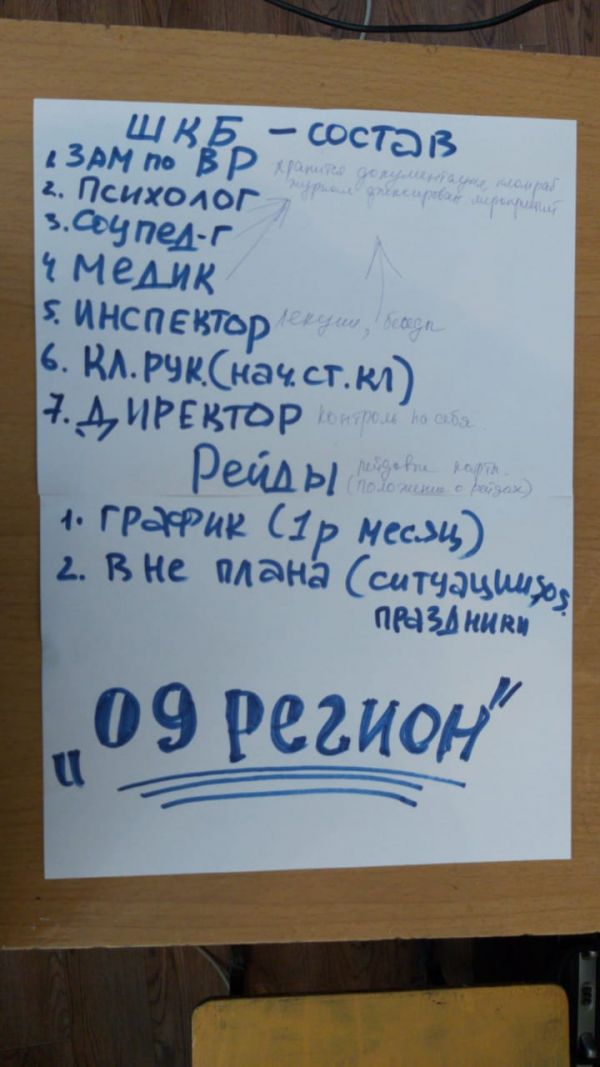 ШКБ - состав
1. ЗАМ по ВР
хранится документация, план раб
2. Психолог
журнал фиксирован мероприятий
3. Соцпед-г
4 Медик
5. Инспектор лекции, беседы
6. Кл.рук.(нач.ст.кл)
7. Директор контроль на себя.
Рейды рейдовые карты.
(положение о рейдах)
1. График (1р месяц)
2. Вне плана (ситуации, SOS.
праздники
"09 регион"